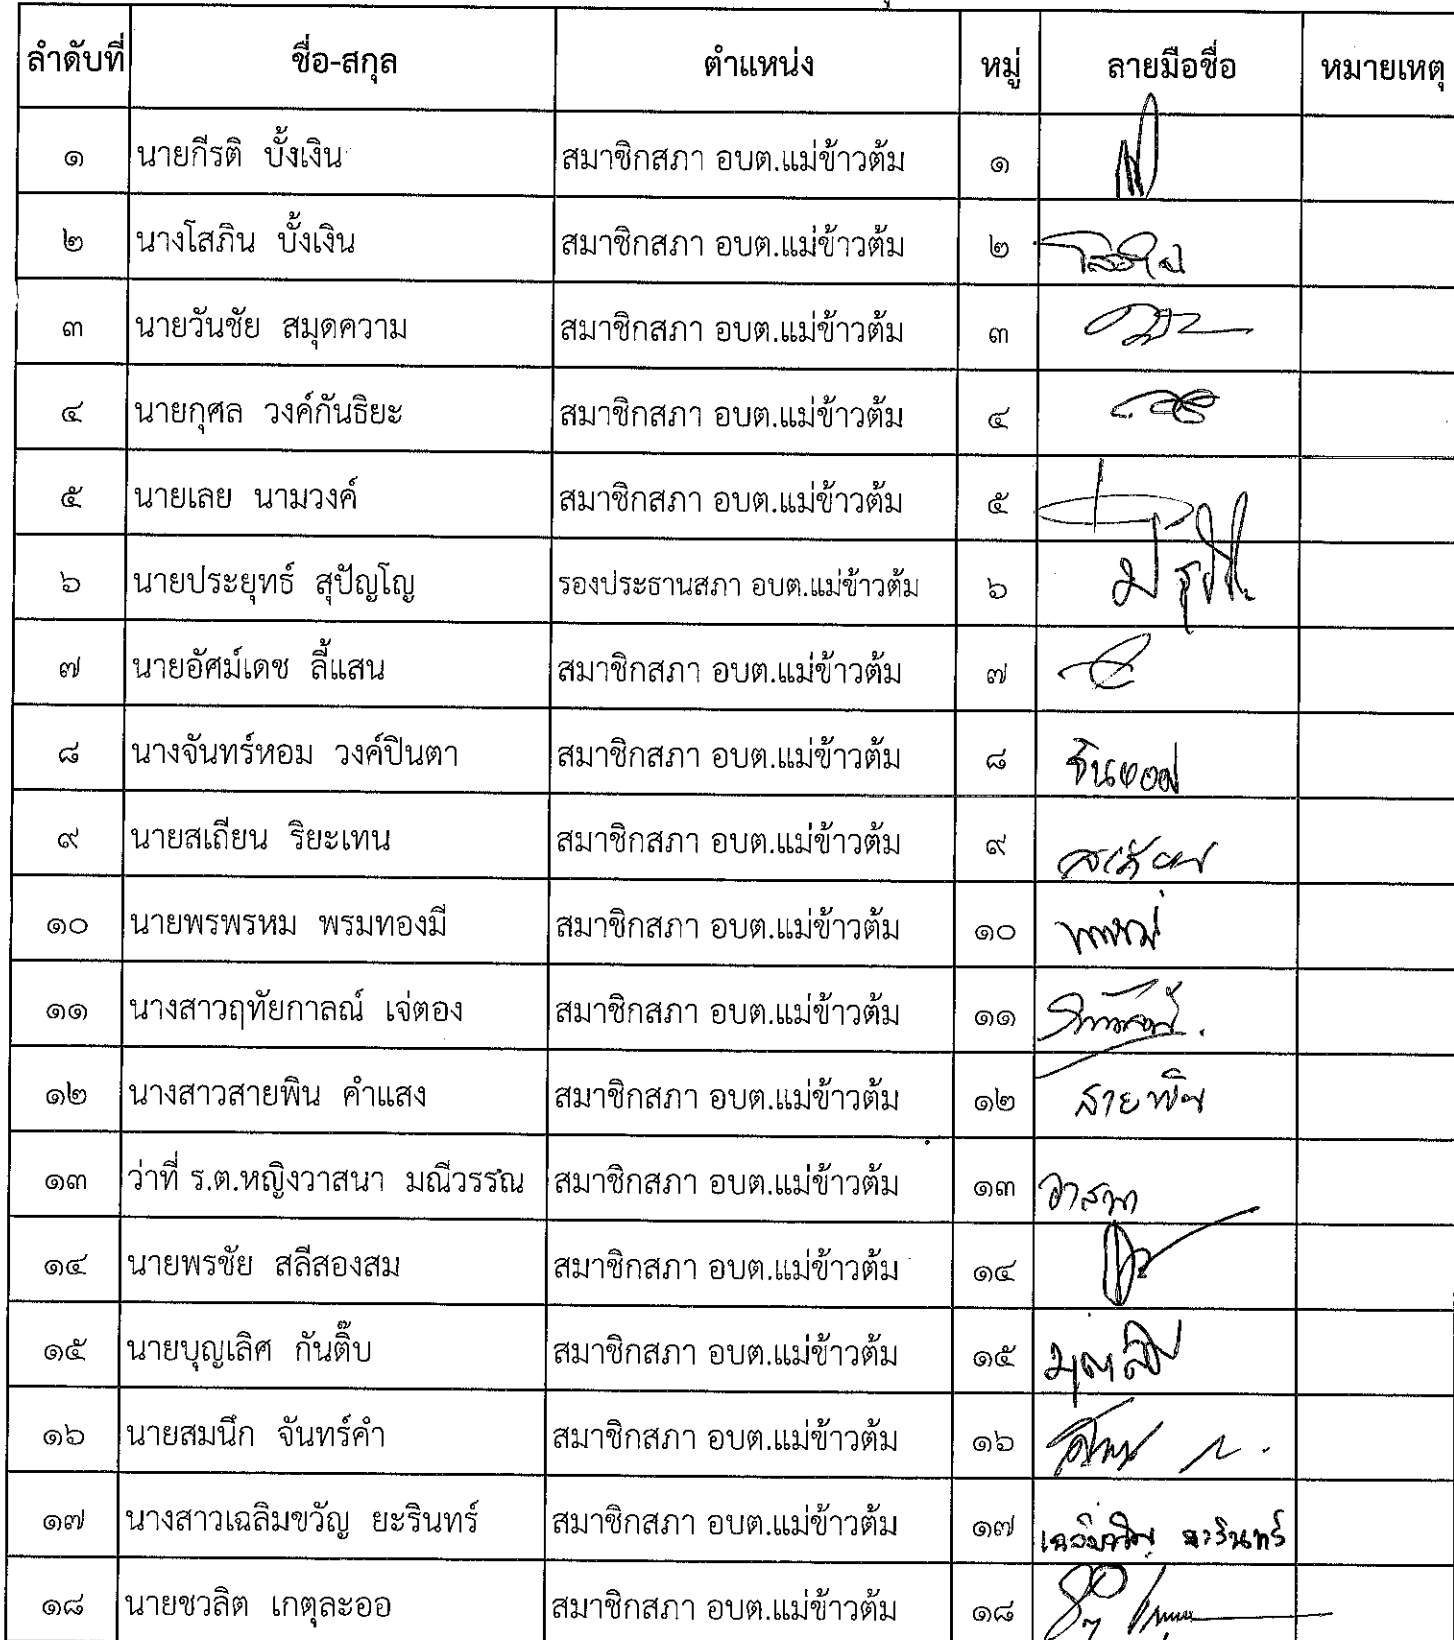 ลำดับที่ ชื่อ-สกุล ตำแหน่ง หมู่ ลายมือชื่อ หมายเหตุ
๑ นายกีรติ บั้งเงิน สมาชิกสภา อบต.แม่ข้าวต้ม ๑
๒ นางโสภิน บั้งเงิน สมาชิกสภา อบต.แม่ข้าวต้ม ๒
๓ นายวันชัย สมุดความ สมาชิกสภา อบต.แม่ข้าวต้ม ๓
๔ นายกุศล วงค์กันธิยะ สมาชิกสภา อบต.แม่ข้าวต้ม ๔
๕ นายเลย นามวงค์ สมาชิกสภา อบต.แม่ข้าวต้ม ๕
๖ นายประยุทธ์ สุปัญโญ รองประธานสภา อบต.แม่ข้าวต้ม ๖
๗ นายอัศม์เดช ลี้แสน สมาชิกสภา อบต.แม่ข้าวต้ม ๗
๘ นางจันทร์หอม วงค์ปินตา สมาชิกสภา อบต.แม่ข้าวต้ม ๘
๙ นายสเถียน ริยะเทน สมาชิกสภา อบต.แม่ข้าวต้ม ๙
๑๐ นายพรพรหม พรมทองมี สมาชิกสภา อบต.แม่ข้าวต้ม ๑๐
๑๑ นางสาวฤทัยกาลณ์ เจ่ตอง สมาชิกสภา อบต.แม่ข้าวต้ม ๑๑
๑๒ นางสาวสายพิน คำแสง สมาชิกสภา อบต.แม่ข้าวต้ม ๑๒ สายพิน
๑๓ ว่าที่ ร.ต.หญิงวาสนา มณีวรรณ สมาชิกสภา อบต.แม่ข้าวต้ม ๑๓ วาสนา
๑๔ นายพรชัย สลีสองสม สมาชิกสภา อบต.แม่ข้าวต้ม ๑๔
๑๕ นายบุญเลิศ กันติ๊บ สมาชิกสภา อบต.แม่ข้าวต้ม ๑๕
๑๖ นายสมนึก จันทร์คำ สมาชิกสภา อบต.แม่ข้าวต้ม ๑๖
๑๗ นางสาวเฉลิมขวัญ ยะรินทร์ สมาชิกสภา อบต.แม่ข้าวต้ม ๑๗ เฉลิมขวัญ ยะรินทร์
๑๘ นายชวลิต เกตุละออ สมาชิกสภา อบต.แม่ข้าวต้ม ๑๘